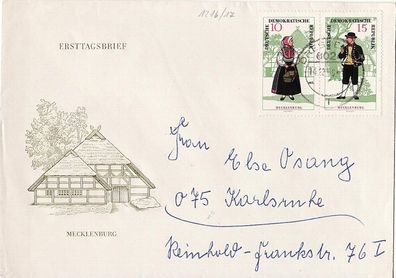 1216/17
ERSTTAGSBRIEF
DEUTSCHE DEMOKRATISCHE REPUBLIK
10
MECKLENBURG
DEUTSCHE DEMOKRATISCHE REPUBLIK
15
MECKLENBURG
602
Frau
Else Osang
075 Karlsruhe
Reinhold-Frankstr. 76 I
MECKLENBURG